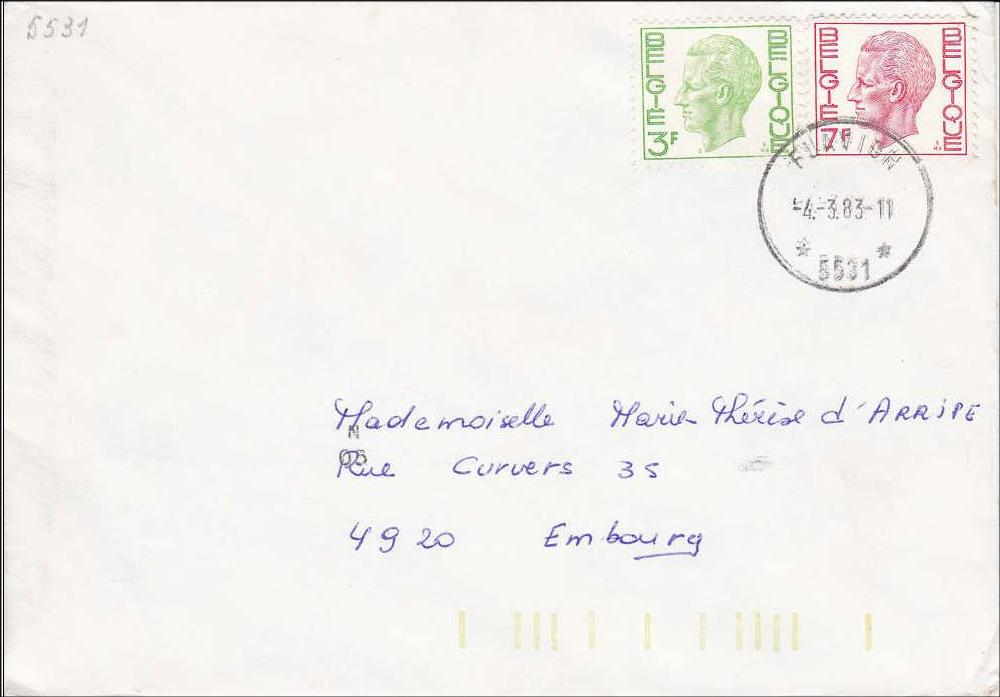 5531
BELGIE BELGIQUE
3F
BELGIE BELGIQUE
7F
FLAVION
-4.-3.83-11
5531
Mademoiselle Marie-Thérèse d'ARRIPE
N
05
Rue Curvers 35
4920 Embourg